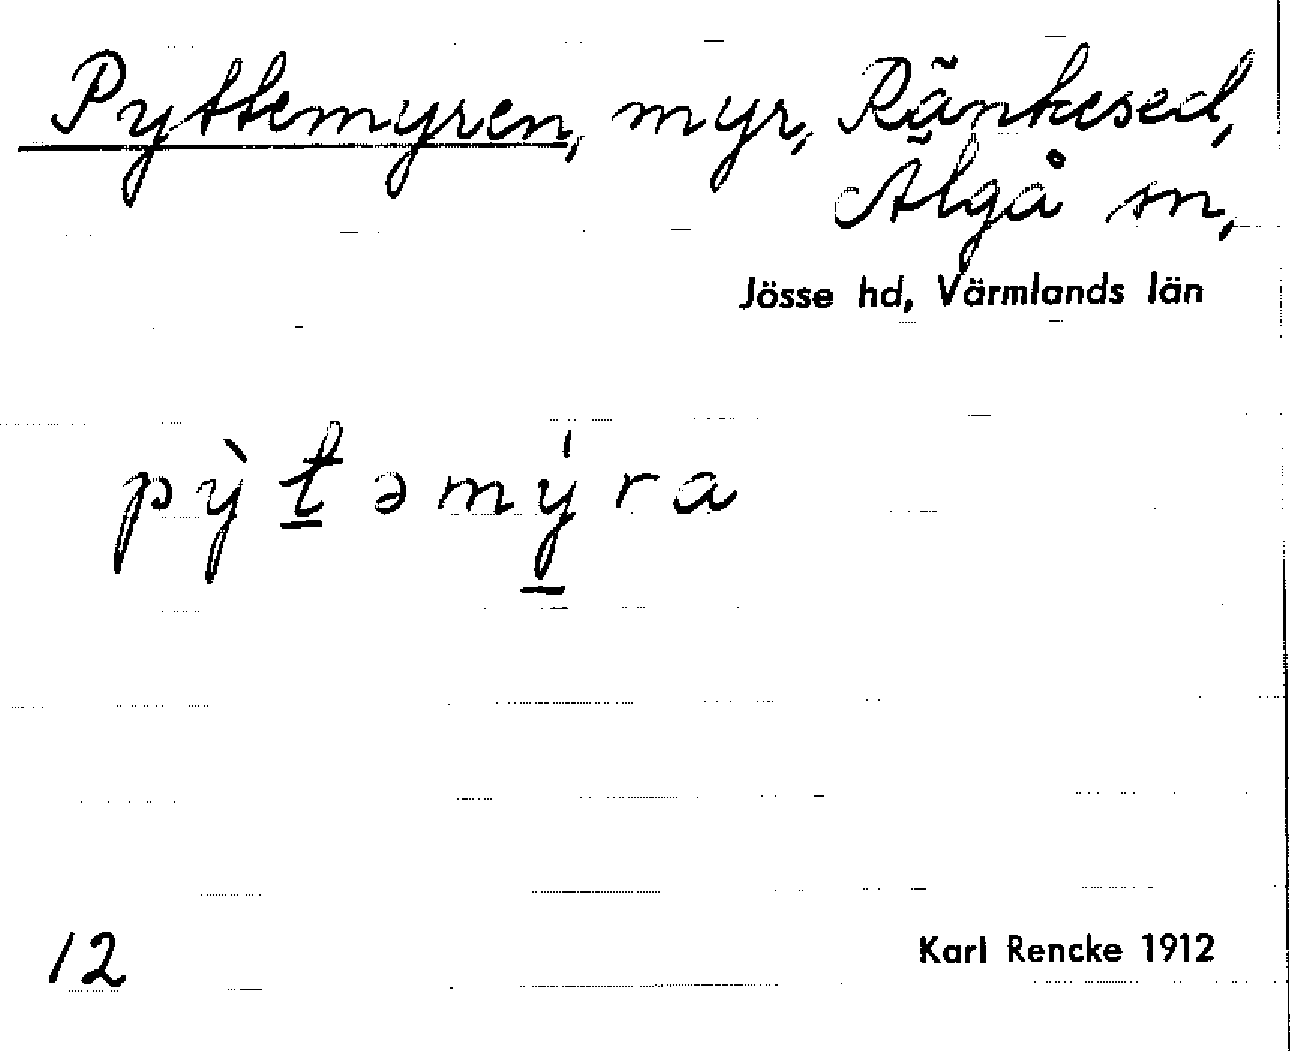 Pyttemyren, myr, Ränkesed,
Älgå sn,
Jösse hd, Värmlands län
pỳt̲əmý̲ra
12
Karl Rencke 1912